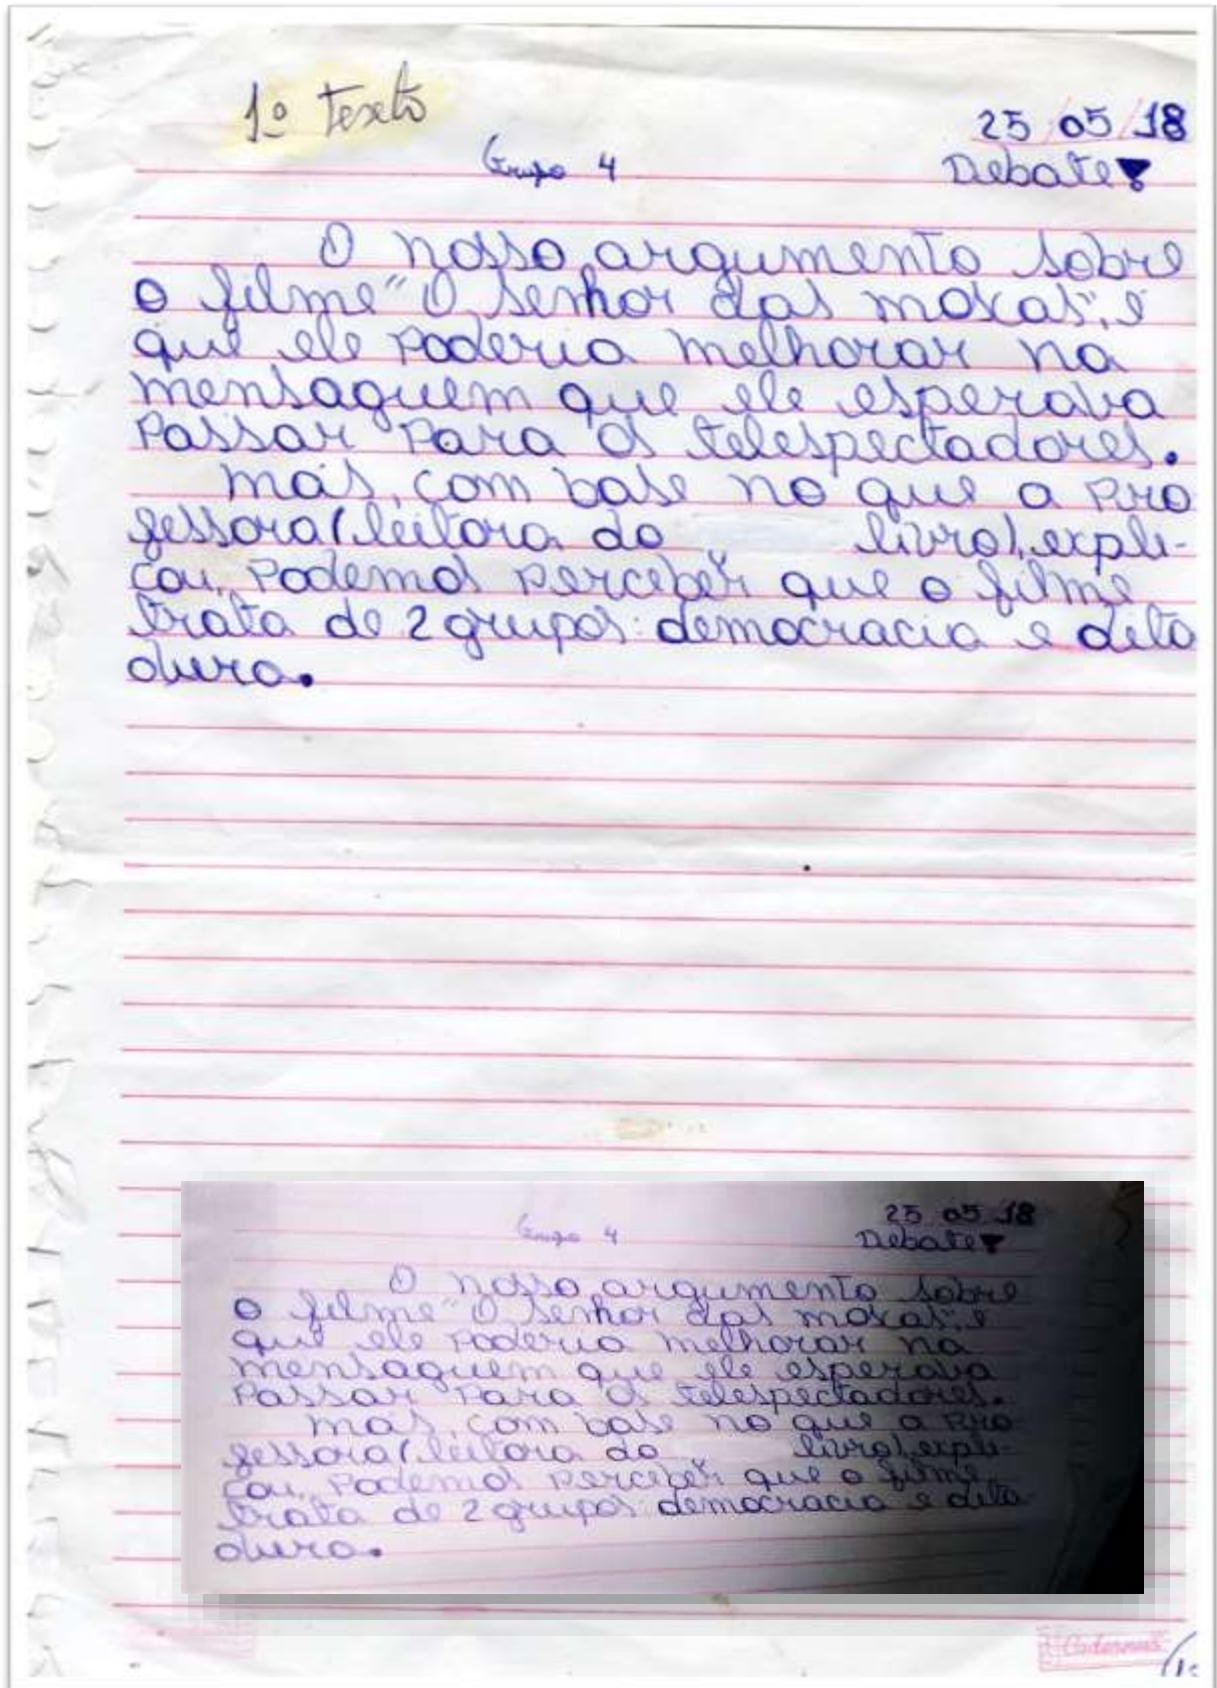 1º Texto
25/05/18
Grupo 4
Debate!
O nosso argumento sobre
o filme "O senhor das moscas", é
que ele poderia melhorar na
mensaguem que ele esperava
passar para os telespectadores.
mas, com base no que a pro
fessora (leitora do livro), expli-
cou, podemos perceber que o filme
trata de 2 grupos: democracia e dita
dura.
25 05 18
Grupo 4
Debate!
O nosso argumento sobre
o filme "O senhor das moscas", é
que ele poderia melhorar na
mensaguem que ele esperava
passar para os telespectadores.
mas, com base no que a pro
fessora (leitora do livro), expli-
cou, podemos perceber que o filme
trata de 2 grupos: democracia e dita
dura.